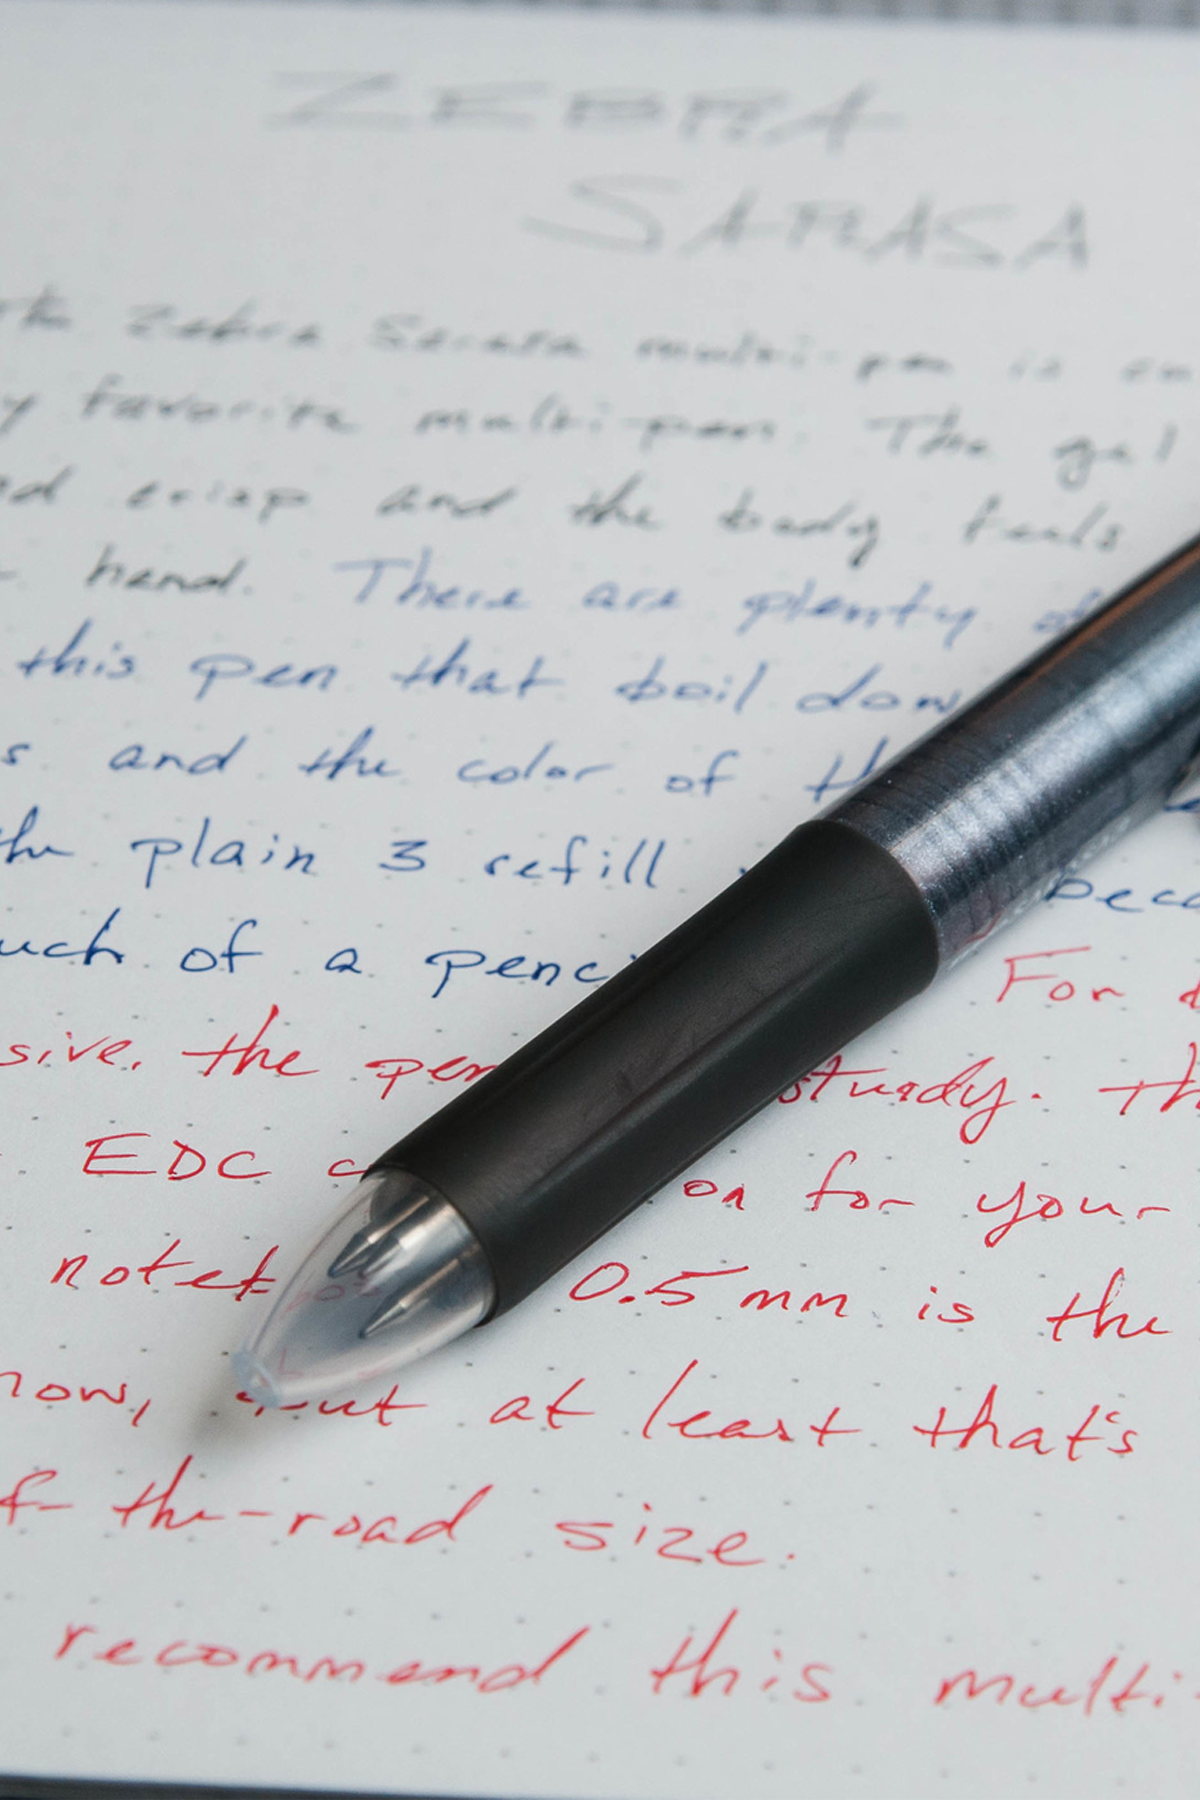 ZEBRA
SARASA
The Zebra Sarasa multi-pen is
y favorite multi-pen. The gel
crisp and the body feels
hand. There are plenty of
this pen that boil down
s and the color of
the plain 3 refill
uch of a penci For
sive. the pen sturdy. Th
EDC c on for your
notebo 0.5 mm is the
now, but at least that's
f-the-road size.
recommend this multi-